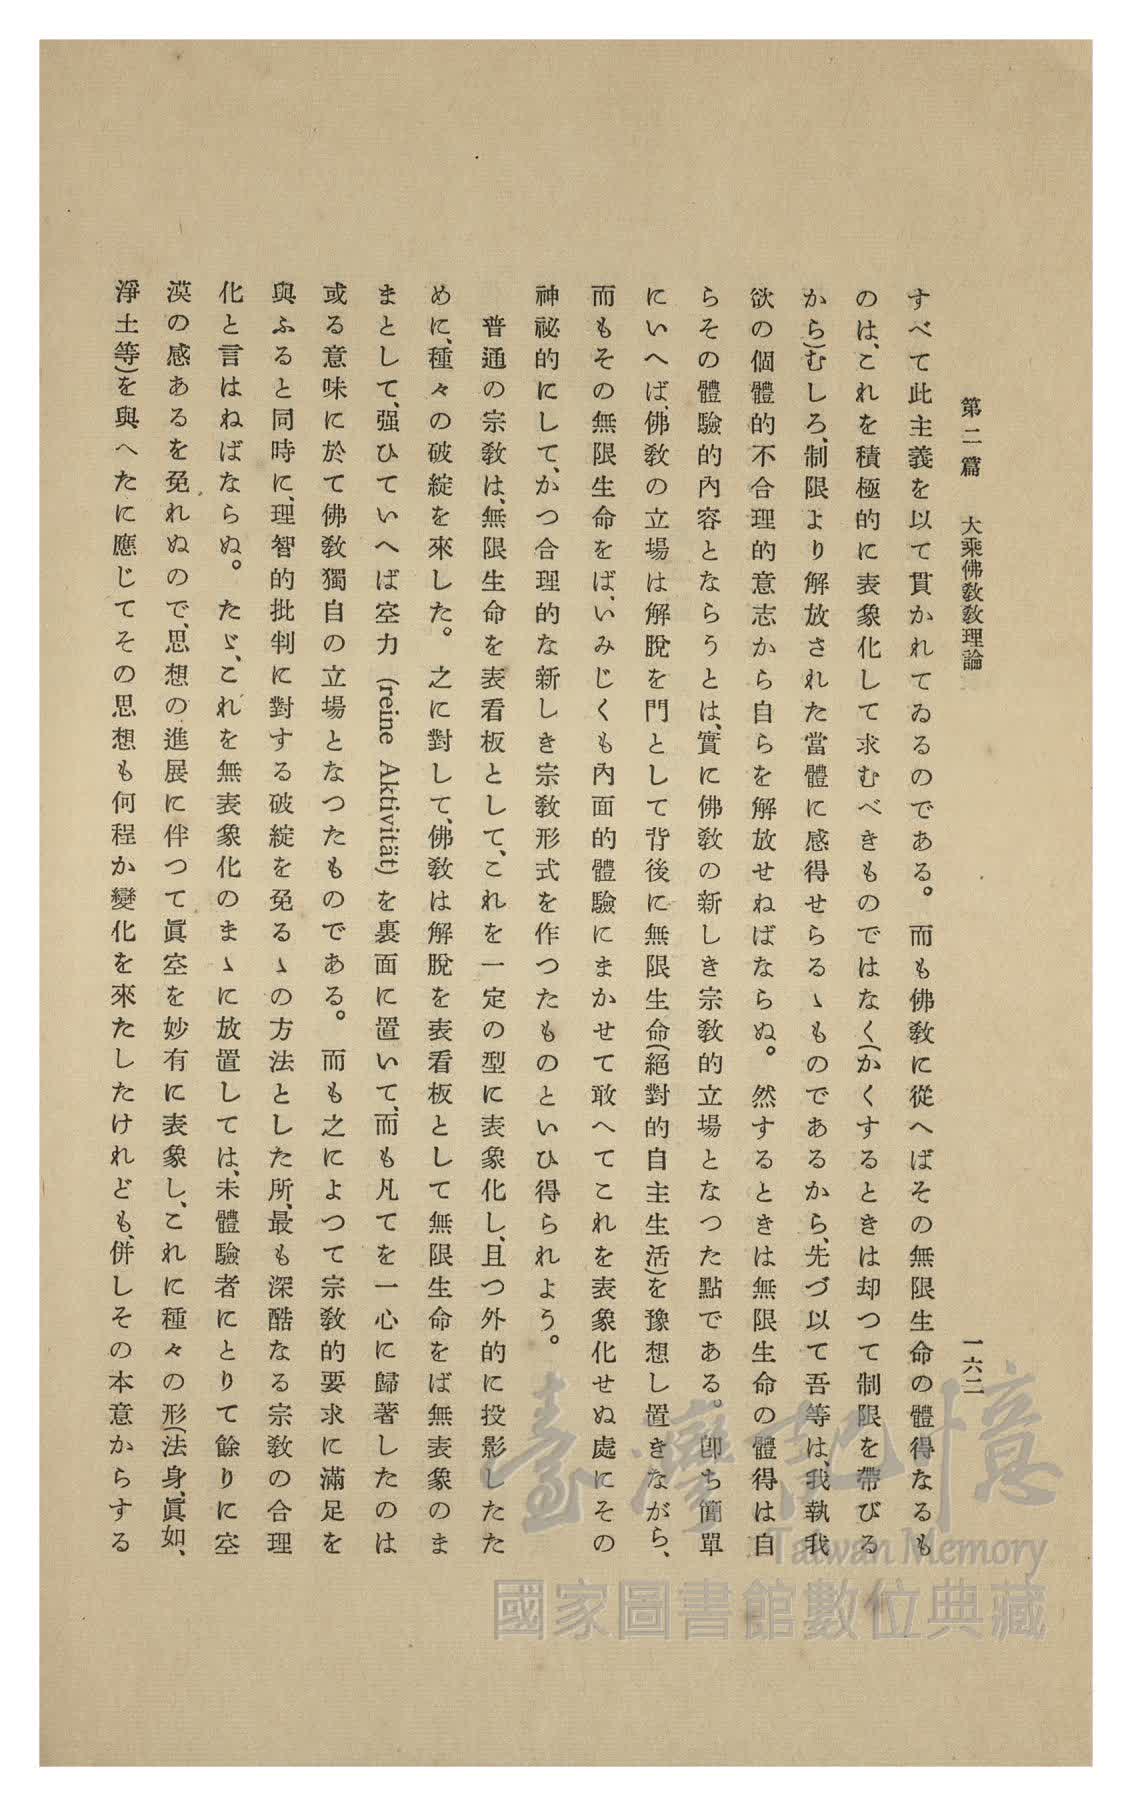 第二篇　大乘佛敎敎理論　一六二
すべて此主義を以て貫かれてゐるのである。而も佛敎に從へばその無限生命の體得なるも
のは、これを積極的に表象化して求むべきものではなく(かくするときは却つて制限を帶びる
から)むしろ、制限より解放された當體に感得せらるゝものであるから、先づ以て吾等は、我執我
欲の個體的不合理的意志から自らを解放せねばならぬ。然するときは無限生命の體得は自
らその體驗的內容とならうとは、實に佛敎の新しき宗敎的立場となつた點である。卽ち簡單
にいへば、佛敎の立場は解脫を門として背後に無限生命(絕對的自主生活)を豫想し置きながら、
而もその無限生命をば、いみじくも內面的體驗にまかせて敢へてこれを表象化せぬ處にその
神祕的にして、かつ合理的な新しき宗敎形式を作つたものといひ得られよう。
普通の宗敎は、無限生命を表看板として、これを一定の型に表象化し、且つ外的に投影したた
めに、種々の破綻を來した。之に對して、佛敎は解脫を表看板として無限生命をば無表象のま
まとして、强ひていへば空力(reine Aktivität)を裏面に置いて、而も凡てを一心に歸著したのは
或る意味に於て佛敎獨自の立場となつたものである。而も之によつて宗敎的要求に滿足を
與ふると同時に、理智的批判に對する破綻を免るゝの方法とした所、最も深酷なる宗敎の合理
化と言はねばならぬ。たゞ、これを無表象化のまゝに放置しては、未體驗者にとりて餘りに空
漠の感あるを免れぬので、思想の進展に伴つて眞空を妙有に表象し、これに種々の形(法身、眞如、
淨土等)を與へたに應じてその思想も何程か變化を來たしたけれども、併しその本意からする
臺灣記憶
Taiwan Memory
國家圖書館數位典藏